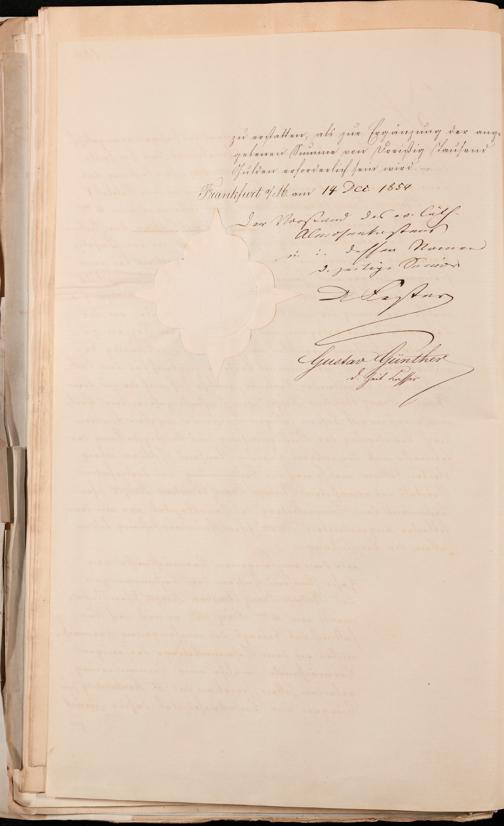 zu erstatten, als zur Ergänzung der ange-
gebenen Summe von Dreißig Tausend
Gulden erforderlich sein wird.
Frankfurt a/M. am 14 Dec 1854
Der Vorstand des ev. luth.
Almosenkastens
u. in dessen Namen
d. zeitige Senior
Gustav Günther
d. Zeit Kassier